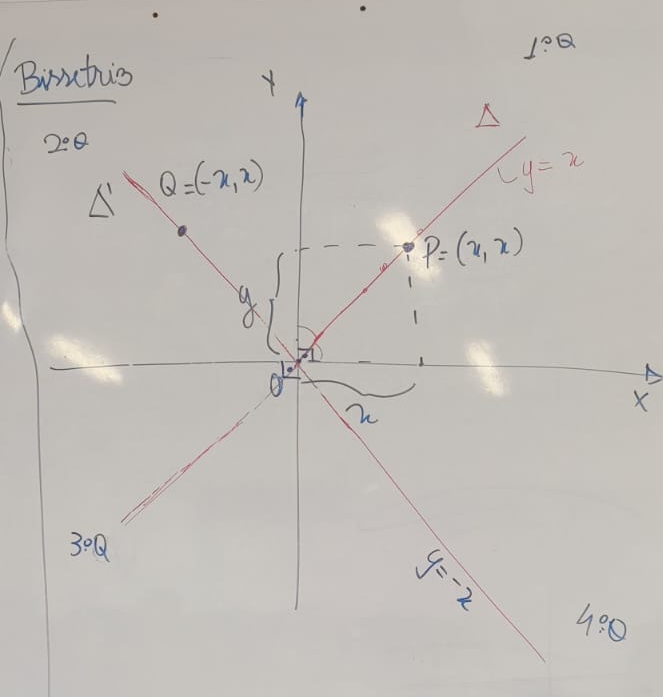 1ºQ
Bissetriz
Y
2ºQ
Δ
y = x
Δ'
Q = (-x, x)
P = (x, x)
y
O
x
X
3ºQ
y = -x
4ºQ